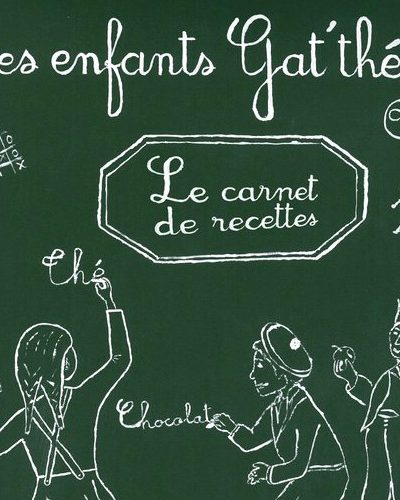 es enfants Gat'thé
Le carnet
de recettes
Thé
Chocolat